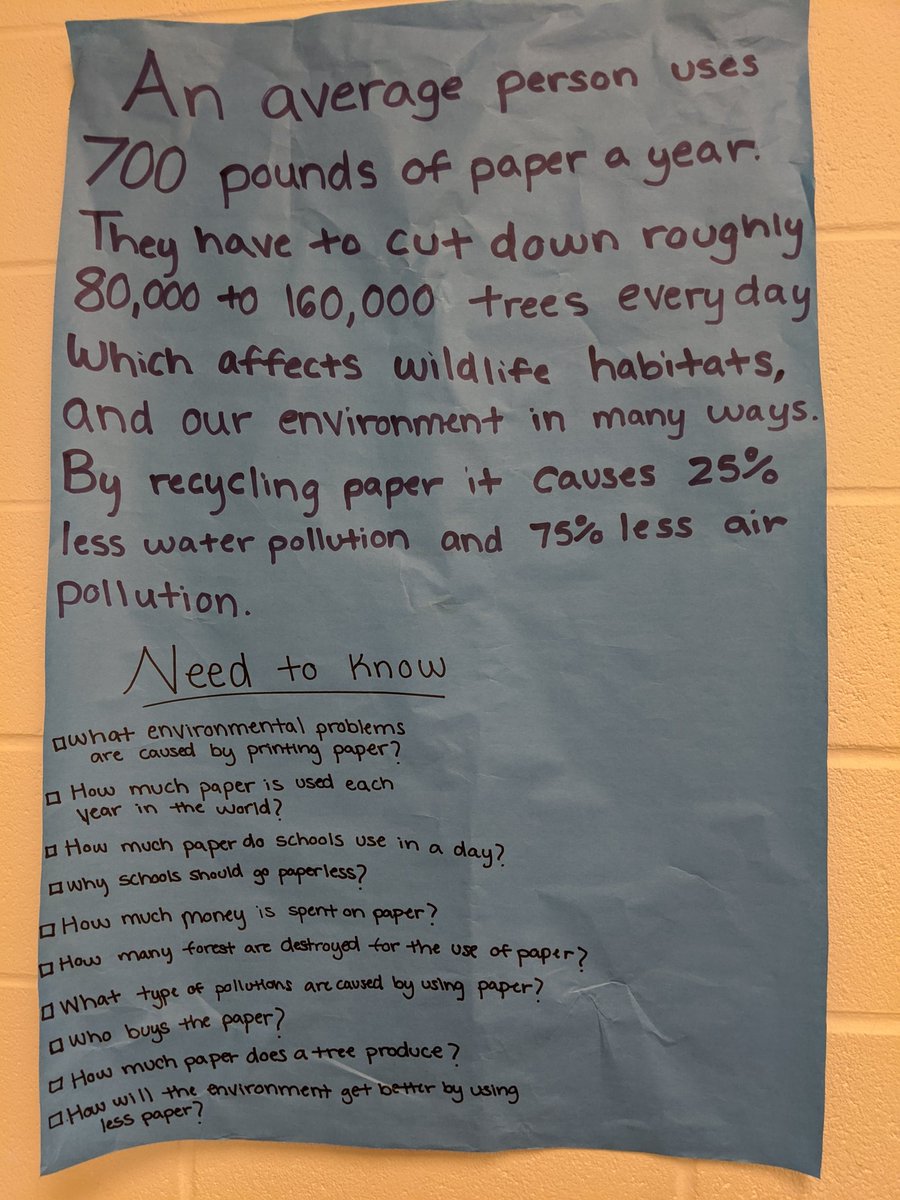 An average person uses
700 pounds of paper a year.
They have to cut down roughly
80,000 to 160,000 trees everyday
Which affects wildlife habitats,
and our environment in many ways.
By recycling paper it causes 25%
less water pollution and 75% less air
pollution.
Need to Know
□ What environmental problems
are caused by printing paper?
□ How much paper is used each
year in the world?
□ How much paper do schools use in a day?
□ Why schools should go paperless?
□ How much money is spent on paper?
□ How many forest are destroyed for the use of paper?
□ What type of pollutions are caused by using paper?
□ Who buys the paper?
□ How much paper does a tree produce?
□ How will the environment get better by using
less paper?